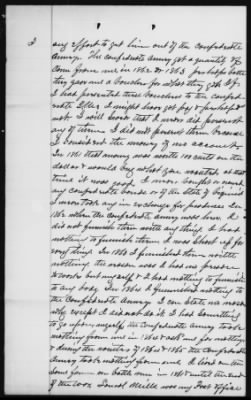 any effort to get him out of the Confederate
Army. The Confederate Army got a quantity of
Corn from me in 1862 & 1863 perhaps both
they gave me a voucher for what they got. If
I had presented these vouchers to the Confed-
erate I might have got pay & perhaps
not. I will swear that I never did present
any of them. I did not present them because
I considered the money of no account.
In 1861 that money was worth 100 cents on the
dollar & would buy what you wanted at that
time it was good. I never bought or owned
any Confederate bonds or of the State of Virginia
I never took any in exchange for produce. In
1862 when the Confederate Army was here I
did not furnish them with any thing. I had
nothing to furnish them. I was
very thing. In 1863 I furnished them with
nothing the reason was I had no
to work but myself & I had nothing to furnish
to any body. In 1864 I furnished nothing to
the Confederate Army. I can state no more
why except I did not do it. I had something
to go upon myself the Confederate Army took
nothing from me in 1864 & ask me for nothing
& during the winter of 1864 & 1865 the Confederate
Army took nothing from me. I lived on the
same farm on in 1861 until the end
of the war. was my Post Office